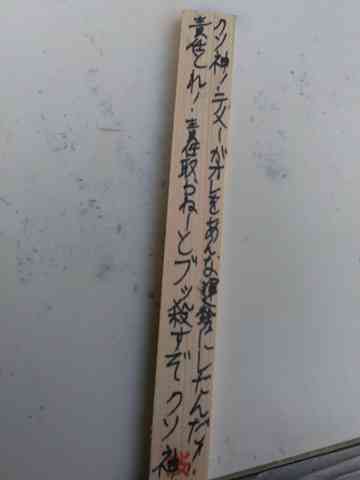 クソ神!テメーがオレをあんな運勢にしたんだ!
責任とれ!責任取らねーとブッ殺すぞクソ神